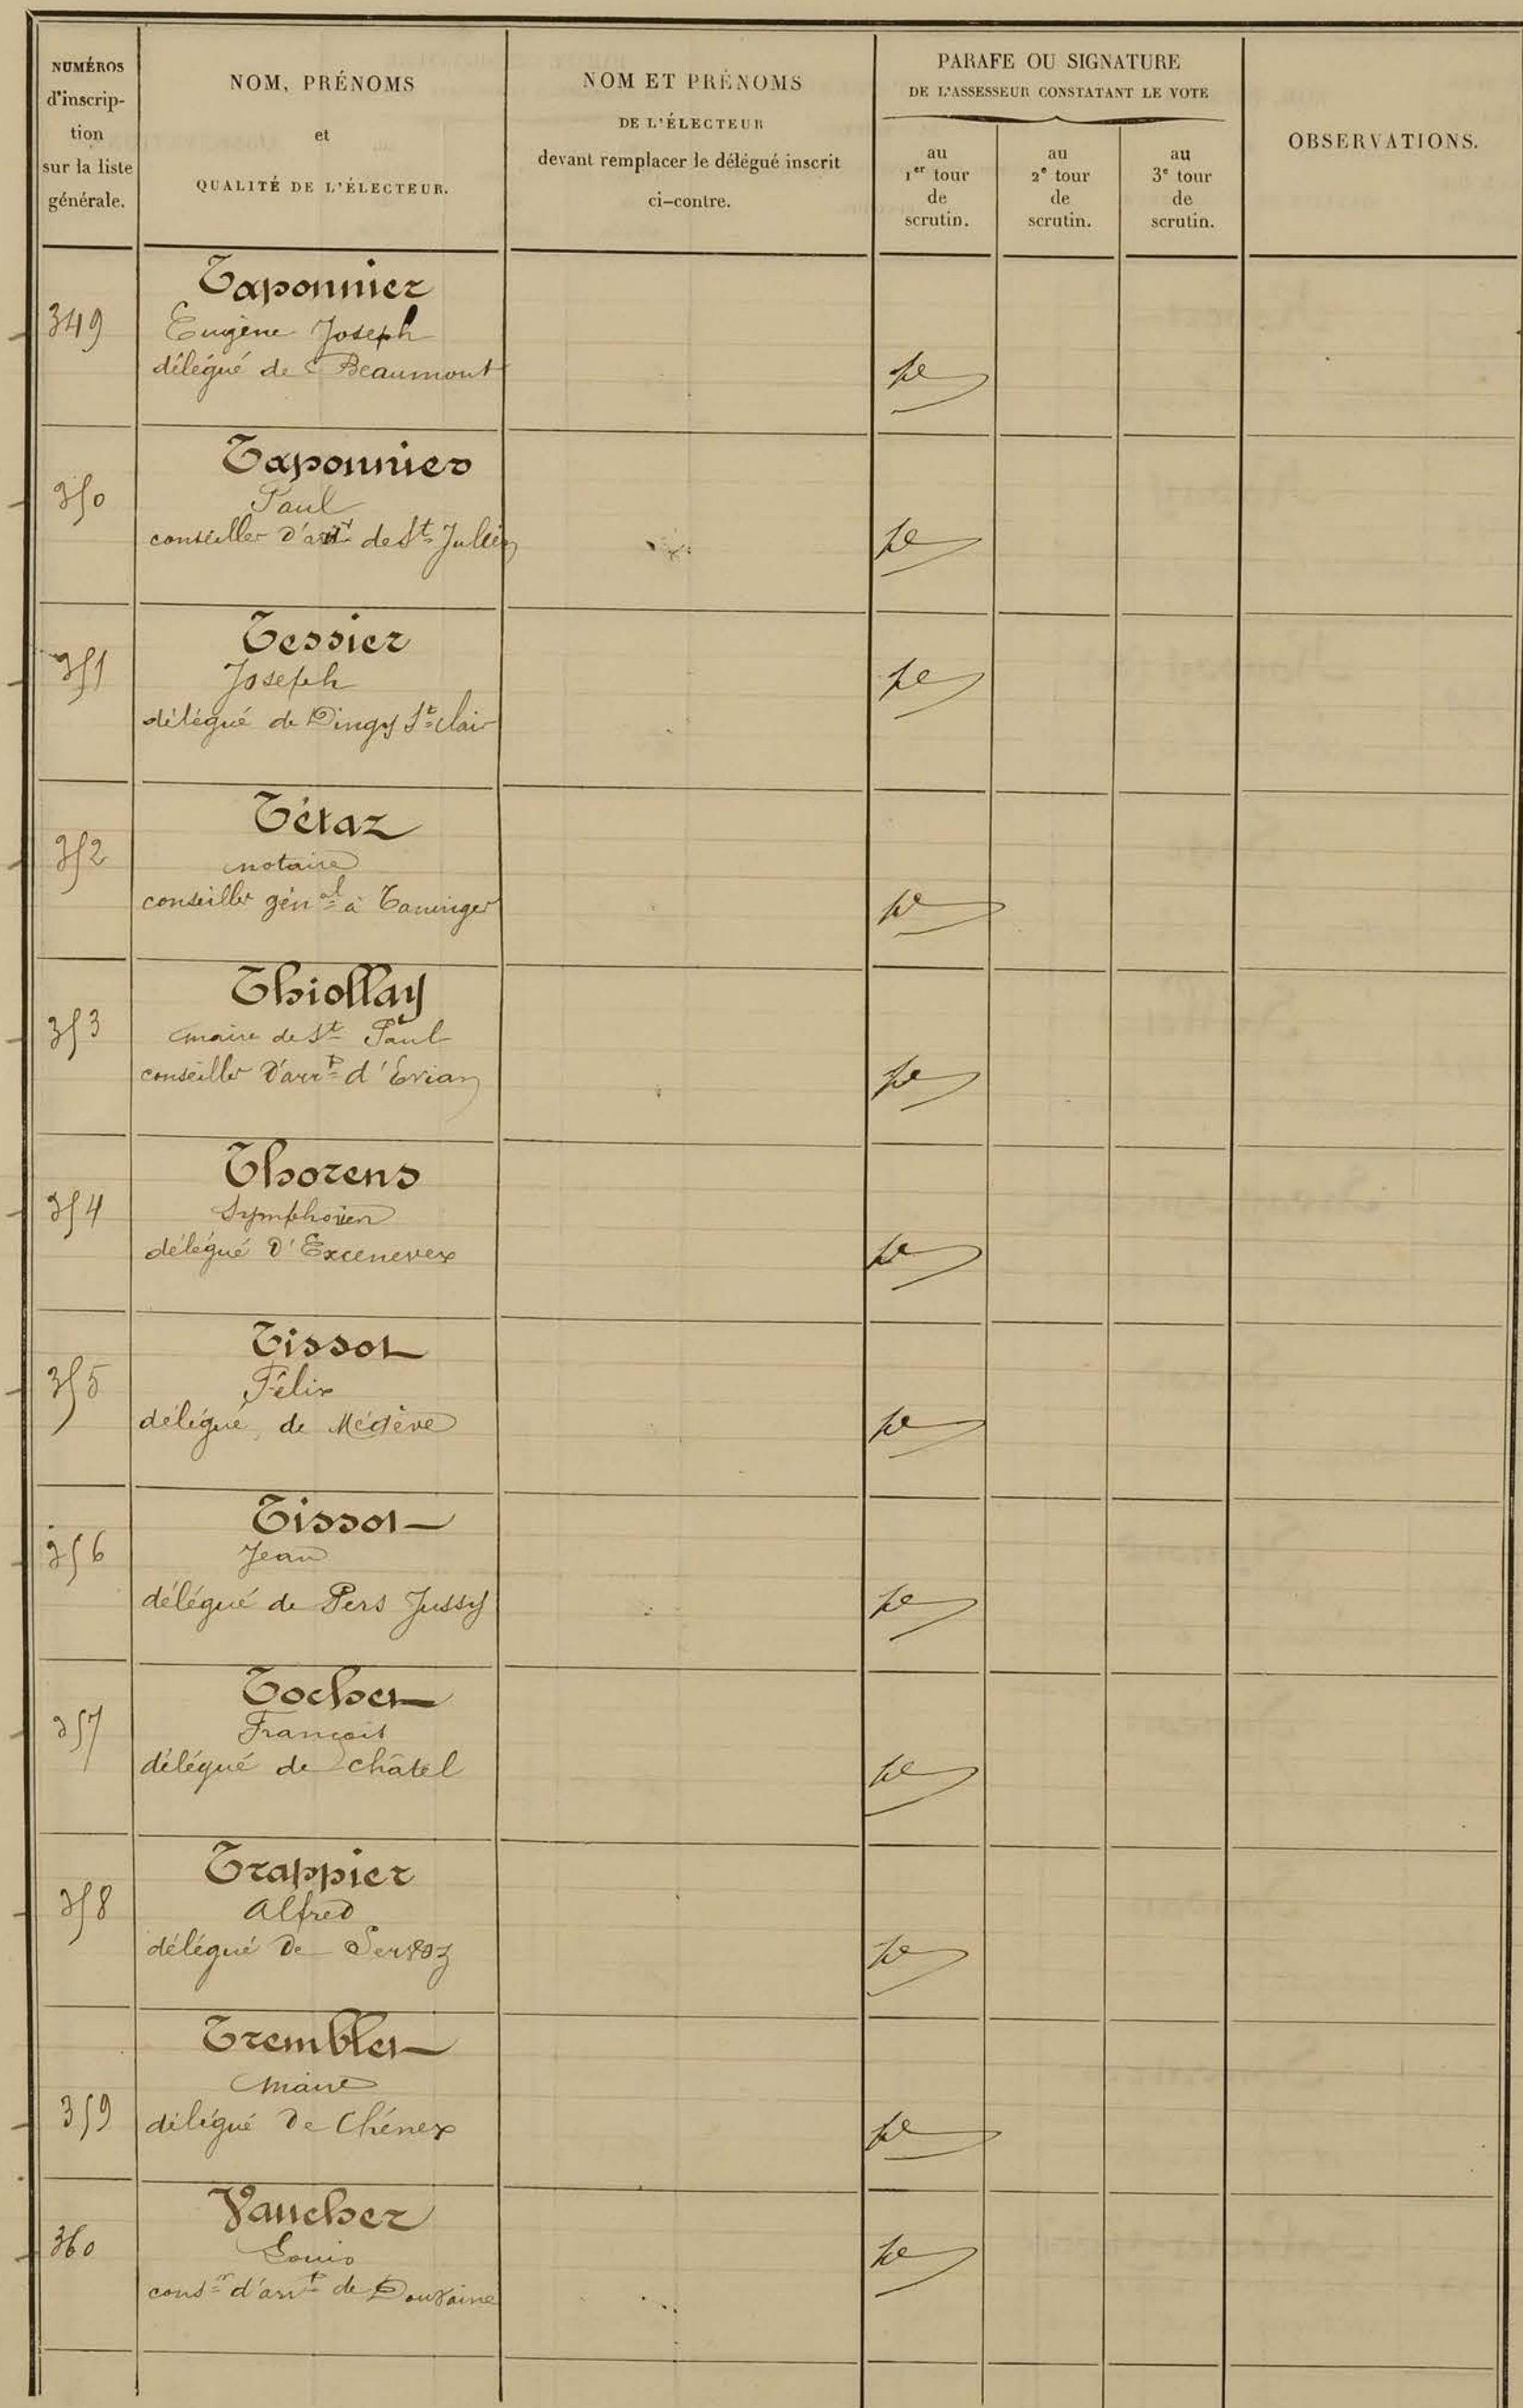 NUMÉROS
d'inscrip-
tion
sur la liste
générale.
NOM, PRÉNOMS
et
QUALITÉ DE L'ÉLECTEUR.
NOM ET PRÉNOMS
DE L'ÉLECTEUR
devant remplacer le délégué inscrit
ci-contre.
PARAFE OU SIGNATURE
DE L'ASSESSEUR CONSTATANT LE VOTE
au
1er tour
de
scrutin.
au
2e tour
de
scrutin.
au
3e tour
de
scrutin.
OBSERVATIONS.
Taponnier
349 Eugène Joseph
délégué de Beaumont
Taponnier
350 Paul
conseiller d'arrt de St Julien
Tessier
351 Joseph
délégué de Dingy St clair
Tétaz
352 notaire
conseiller génal à Taninges
Thiollay
353 maire de St Paul
conseiller d'arrt d'Evian
Thorens
354 Symphorien
délégué d'Excenevex
Tissot
355 Félix
délégué de Mégève
Tissot
356 Jean
délégué de Pers Jussy
Tochet
357 François
délégué de châtel
Trappier
358 Alfred
délégué de Servoz
Tremblet
maire
359 délégué de Chénex
Vaucher
360 Louis
consr d'arrt de Douvaine